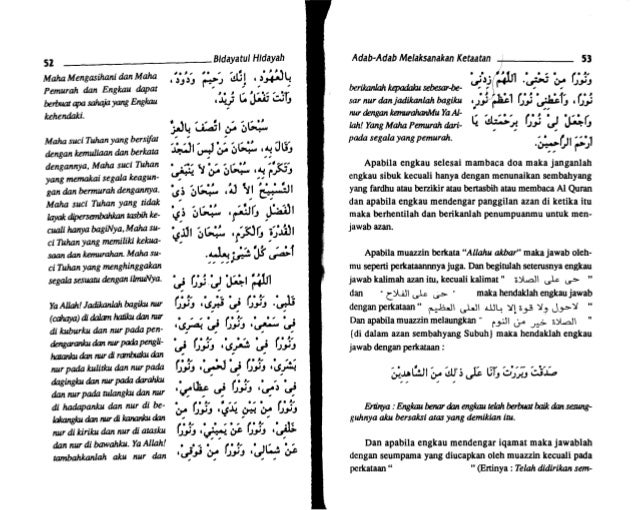 52 Bidayatul Hidayah
Maha Mengasihani dan Maha
Pemurah dan Engkau dapat
berbuat apa sahaja yang Engkau
kehendaki.
Maha suci Tuhan yang bersifat
dengan kemuliaan dan berkata
dengannya, Maha suci Tuhan
yang memakai segala keagun-
gan dan bermurah dengannya.
Maha suci Tuhan yang tidak
layak dipersembahkan tasbih ke-
cuali hanya bagiNya, Maha su-
ci Tuhan yang memiliki kekua-
saan dan kemurahan. Maha su-
ci Tuhan yang menghinggakan
segala sesuatu dengan ilmuNya.
Ya Allah! Jadikanlah bagiku nur
(cahaya) di dalam hatiku dan nur
di kuburku dan nur pada pen-
dengaranku dan nur pada pengli-
hatanku dan nur di rambutku dan
nur pada kulitku dan nur pada
dagingku dan nur pada darahku
dan nur pada tulangku dan nur
di hadapanku dan nur di be-
lakangku dan nur di kananku dan
nur di kiriku dan nur di atasku
dan nur di bawahku. Ya Allah!
tambahkanlah aku nur dan
بِالْعُهُوْدِ، إِنَّكَ رَحِيْمٌ وَدُوْدٌ،
وَأَنْتَ تَفْعَلُ مَا تُرِيْدُ،
سُبْحَانَ مَنِ اتَّصَفَ بِالْعِزِّ
وَقَالَ بِهِ، سُبْحَانَ مَنْ لَبِسَ الْمَجْدَ
وَتَكَرَّمَ بِهِ، سُبْحَانَ مَنْ لَا يَنْبَغِي
التَّسْبِيْحُ اِلَّا لَهُ، سُبْحَانَ ذِي
الْفَضْلِ وَالنِّعَمِ، سُبْحَانَ ذِي
الْقُدْرَةِ وَالْكَرَمِ، سُبْحَانَ الَّذِي
أَحْصَى كُلَّ شَيْئٍ بِعِلْمِهِ.
اَللّٰهُمَّ اجْعَلْ لِيْ نُوْرًا فِيْ
قَلْبِيْ، وَنُوْرًا فِيْ قَبْرِيْ، وَنُوْرًا
فِيْ سَمْعِيْ، وَنُوْرًا فِيْ بَصَرِيْ،
وَنُوْرًا فِيْ شَعْرِيْ، وَنُوْرًا فِيْ
بَشَرِيْ، وَنُوْرًا فِيْ لَحْمِيْ، وَنُوْرًا
فِيْ دَمِيْ، وَنُوْرًا فِيْ عِظَامِيْ،
وَنُوْرًا مِنْ بَيْنِ يَدَيَّ، وَنُوْرًا مِنْ
خَلْفِيْ، وَنُوْرًا عَنْ يَمِيْنِيْ، وَنُوْرًا
عَنْ شِمَالِيْ، وَنُوْرًا مِنْ فَوْقِيْ،
Adab-Adab Melaksanakan Ketaatan 53
berikanlah kepadaku sebesar-be-
sar nur dan jadikanlah bagiku
nur dengan kemurahanMu Ya Al-
lah! Yang Maha Pemurah dari-
pada segala yang pemurah.
وَنُوْرًا مِنْ تَحْتِيْ. اَللّٰهُمَّ زِدْنِيْ
نُوْرًا، وَأَعْطِنِيْ نُوْرًا أَعْظَمَ نُوْرٍ،
وَاجْعَلْ لِيْ نُوْرًا بِرَحْمَتِكَ يَا
أَرْحَمَ الرَّاحِمِيْنَ.
Apabila engkau selesai mambaca doa maka janganlah
engkau sibuk kecuali hanya dengan menunaikan sembahyang
yang fardhu atau berzikir atau bertasbih atau membaca Al Quran
dan apabila engkau mendengar panggilan azan di ketika itu
maka berhentilah dan berikanlah penumpuanmu untuk men-
jawab azan.
Apabila muazzin berkata "Allahu akbar" maka jawab oleh-
mu seperti perkataannnya juga. Dan begitulah seterusnya engkau
jawab kalimah azan itu, kecuali kalimat " حي على الصلاة "
dan " حي على الفلاح " maka hendaklah engkau jawab
dengan perkataan " لاحول ولا قوة إلا بالله العلي العظيم "
Dan apabila muazzin melaungkan " الصلاة خير من النوم "
(di dalam azan sembahyang Subuh) maka hendaklah engkau
jawab dengan perkataan :
صَدَقْتَ وَبَرَرْتَ وَأَنَا عَلَى ذٰلِكَ مِنَ الشَّاهِدِيْنَ
Ertinya : Engkau benar dan engkau telah berbuat baik dan sesung-
guhnya aku bersaksi atas yang demikian itu.
Dan apabila engkau mendengar iqamat maka jawablah
dengan seumpama yang diucapkan oleh muazzin kecuali pada
perkataan " " (Ertinya : Telah didirikan sem-